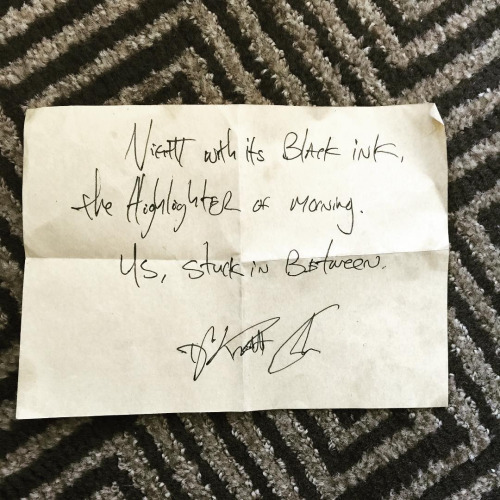 Night with its Black ink,
the Highlighter of morning.
Us, stuck in Between.